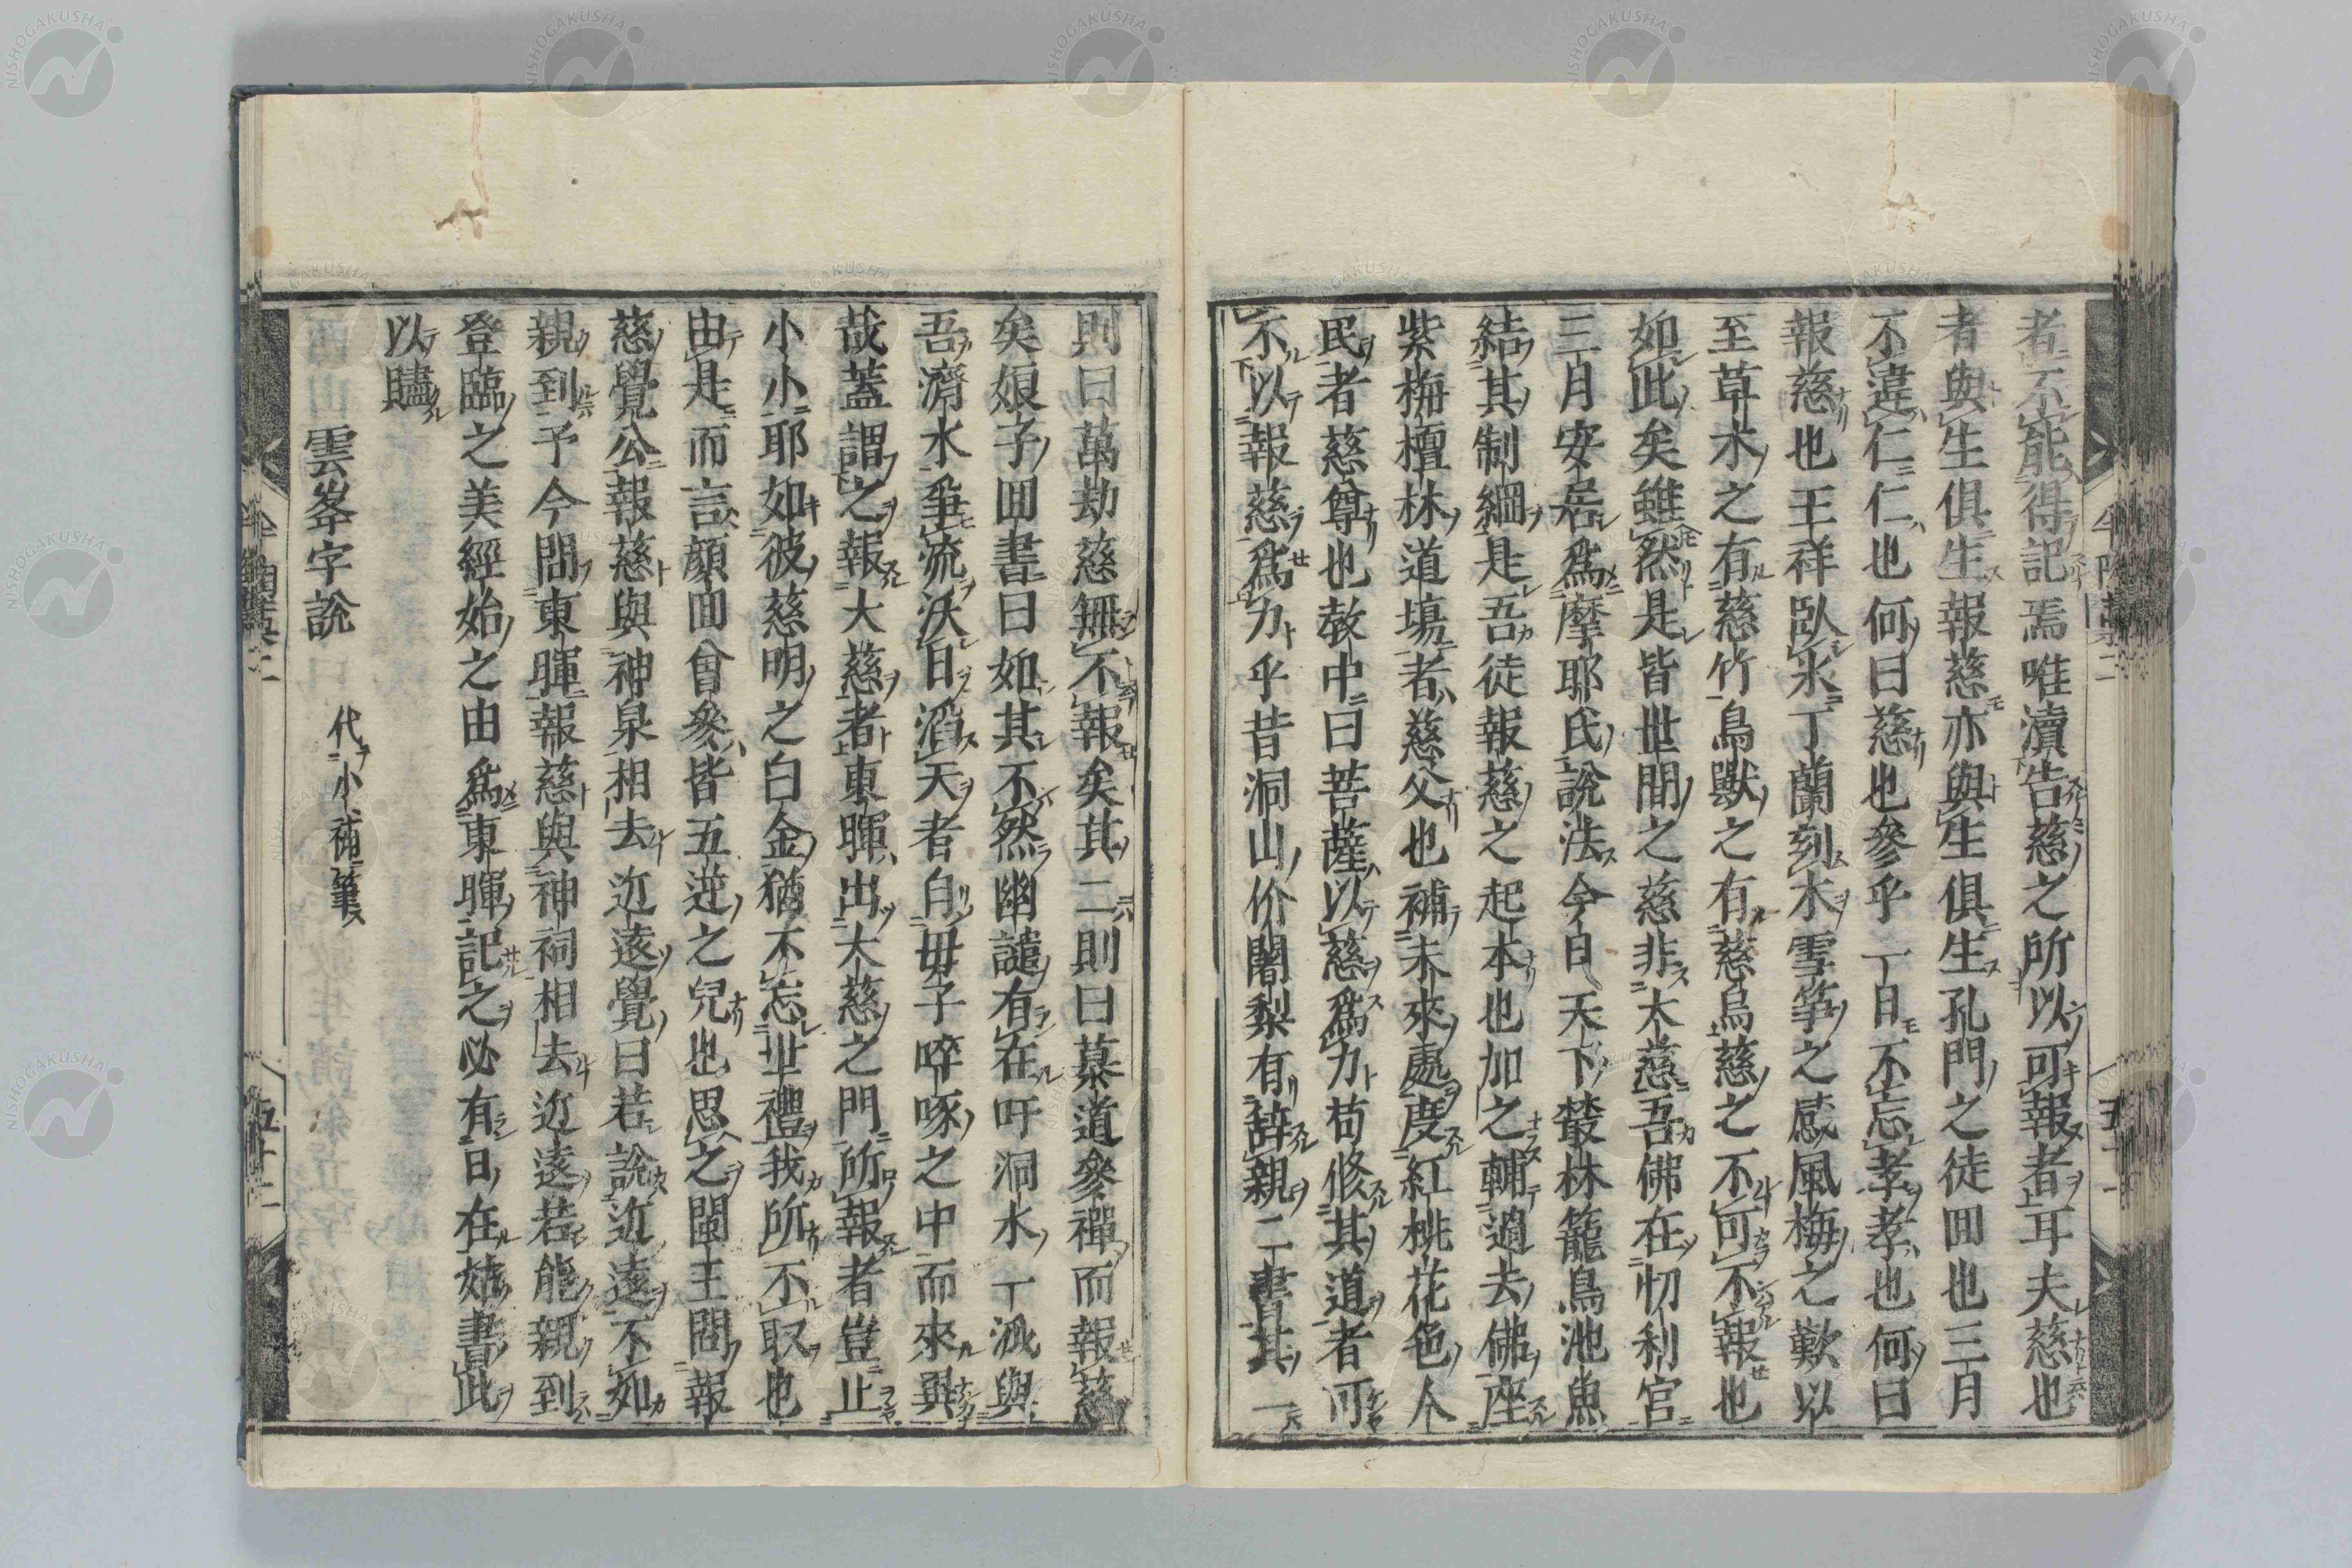 者不能得記焉唯瀆告慈之所以可報者耳夫慈也
者與生俱生報慈亦與生俱生孔門之徒回也三月
不違仁仁也何曰慈也參乎一日不忘孝孝也何曰
報慈也王祥臥氷丁蘭刻木雪筍之感風梅之歎以
至草木之有慈竹鳥獸之有慈烏慈之不可不報也
如此矣雖然是皆世間之慈非大慈吾佛在忉利宮
三月安居爲摩耶氏說法今日天下叢林籠鳥池魚
結其制綱是吾徒報慈之起本也加之輔過去佛座
紫梅檀林道場者慈父也補未來處度紅桃花色人
民者慈尊也敎中曰菩薩以慈爲力苟修其道者可
不以報慈爲力乎昔洞山价闍梨有辭親二書其一
則曰萬劫慈無不報矣其二則曰慕道參禪而報慈
矣娘子回書曰如其不然幽譴有在吁洞水一派與
吾濟水爭流沃日滔天者自毋子啐啄之中而來異
哉蓋謂之報大慈者東暉出大慈之門所報者豈止
小小耶如彼慈明之白金猶不忘世禮我所不取也
由是而言顏回曾參皆五逆之兒也思之閩王問報
慈覺公報慈與神泉相去近遠覺曰若說近遠不如
親到予今問東暉報慈與神祠相去近遠若能親到
登臨之美經始之由爲東暉記之必有日在姑書此
以贐
雲峯字說　代小補筆
五十二